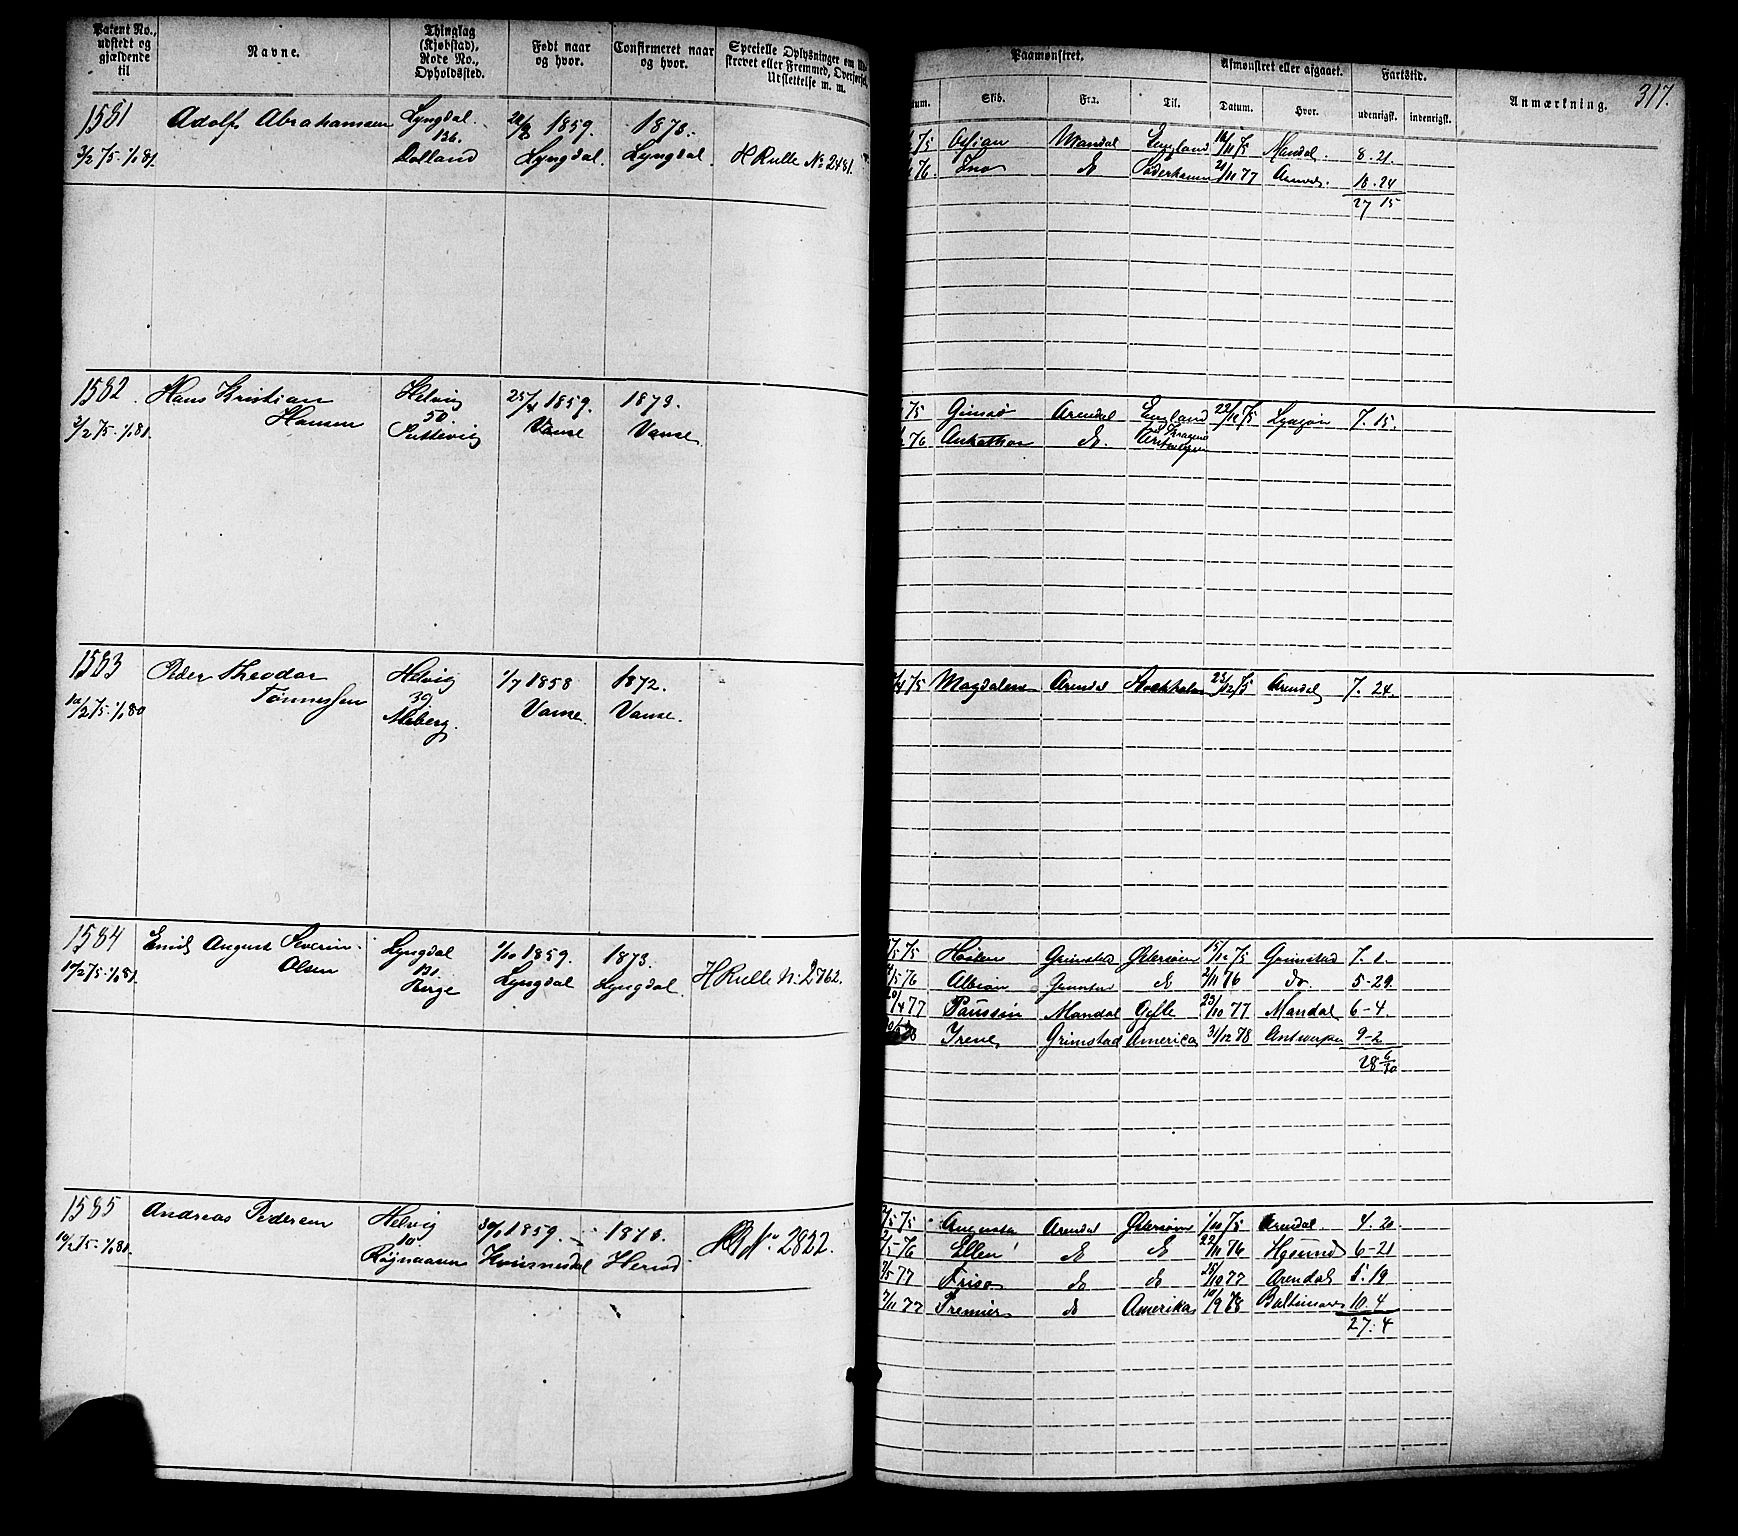 Patent No., udstedt og gjældende til
Navne.
Thinglag (Kjøbstad), Rode No., Opholdssted.
Født naar og hvor.
Confirmeret naar og hvor.
Specielle Oplysninger om
strevet eller Fremmed, Overført,
Udslettelse m. m.
Paamønstret.
Afmønstret eller afgaaet.
Fartstid.
Anmærkning.
317.
Skib.
Fra.
Til.
Datum.
Hvor.
udenrigsk.
indenrigsk.
1581
Adolf Abrahamsen
Lyngdal.
136.
Dolland
1859.
Lyngdal.
1873.
Lyngdal.
H Rulle No 2481.
3/2 75. 1/1 81.
75 Mandal England 75 Mandal. 8-21.
76. do Söderhamn 77 18-24
27 15
1582
Hans Kristian
Hansen
Helvig
50
25/4 1859.
Vanse
1873.
Vanse.
75 Arendal England 22/12 75 7. 15.
76 do.
1583
Peder Theodor
Tønnessen
Helvig
39
1/7 1858
Vanse.
1872.
Vanse.
75 Magdalene Arendal Stockholm 23/12 75 Arendal 7. 24.
1584
Emil August Severin
Olsen
Lyngdal
131.
Berge
1/10 1859.
Lyngdal
1873.
Lyngdal.
H Rulle No 2762.
75 Grimstad Østersøen 15/12 75 Grimstad 7. 1.
76 Albion do 2/11 76 do. 5-29.
77 Mandal Gefle 23/10 77 Mandal 6-4.
Irene Grimstad America 31/12 78 Antwerpen 9-2
28 6/30
1585
Andreas Pedersen
Helvig
10
30/1 1859.
Kvinesdal
1873.
Herred
No 2822.
75 Augusta Arendal Østersøen 1/10 75 Arendal. 4. 20.
76 Ellen do do 22/11 76 6-21
77 do do 25/10 77 Arendal 5. 19
7/11 77 Premier do Amerika 10/9 78 Baltimore 10. 4
27. 4